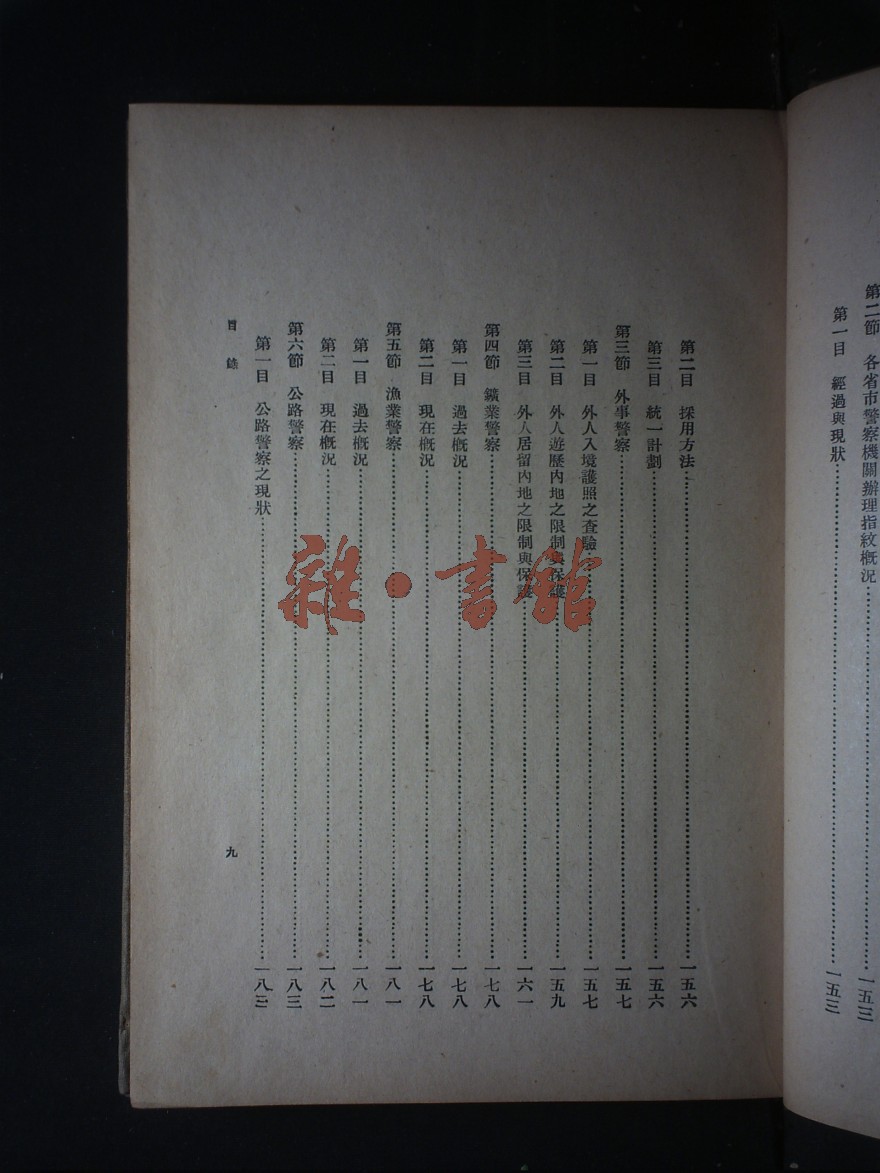 第二節　各省市警察機關辦理指紋槪況……一五三
第一目　經過與現狀……一五三
第二目　採用方法……一五六
第三目　統一計劃……一五六
第三節　外事警察……一五七
第一目　外人入境護照之査驗……一五七
第二目　外人遊歷內地之限制與保護……一五九
第三目　外人居留內地之限制與保護……一六一
第四節　鑛業警察……一七八
第一目　過去槪況……一七八
第二目　現在槪況……一七八
第五節　漁業警察……一八一
第一目　過去槪況……一八一
第二目　現在槪況……一八二
第六節　公路警察……一八三
第一目　公路警察之現狀……一八三
目錄
九
雜·書館